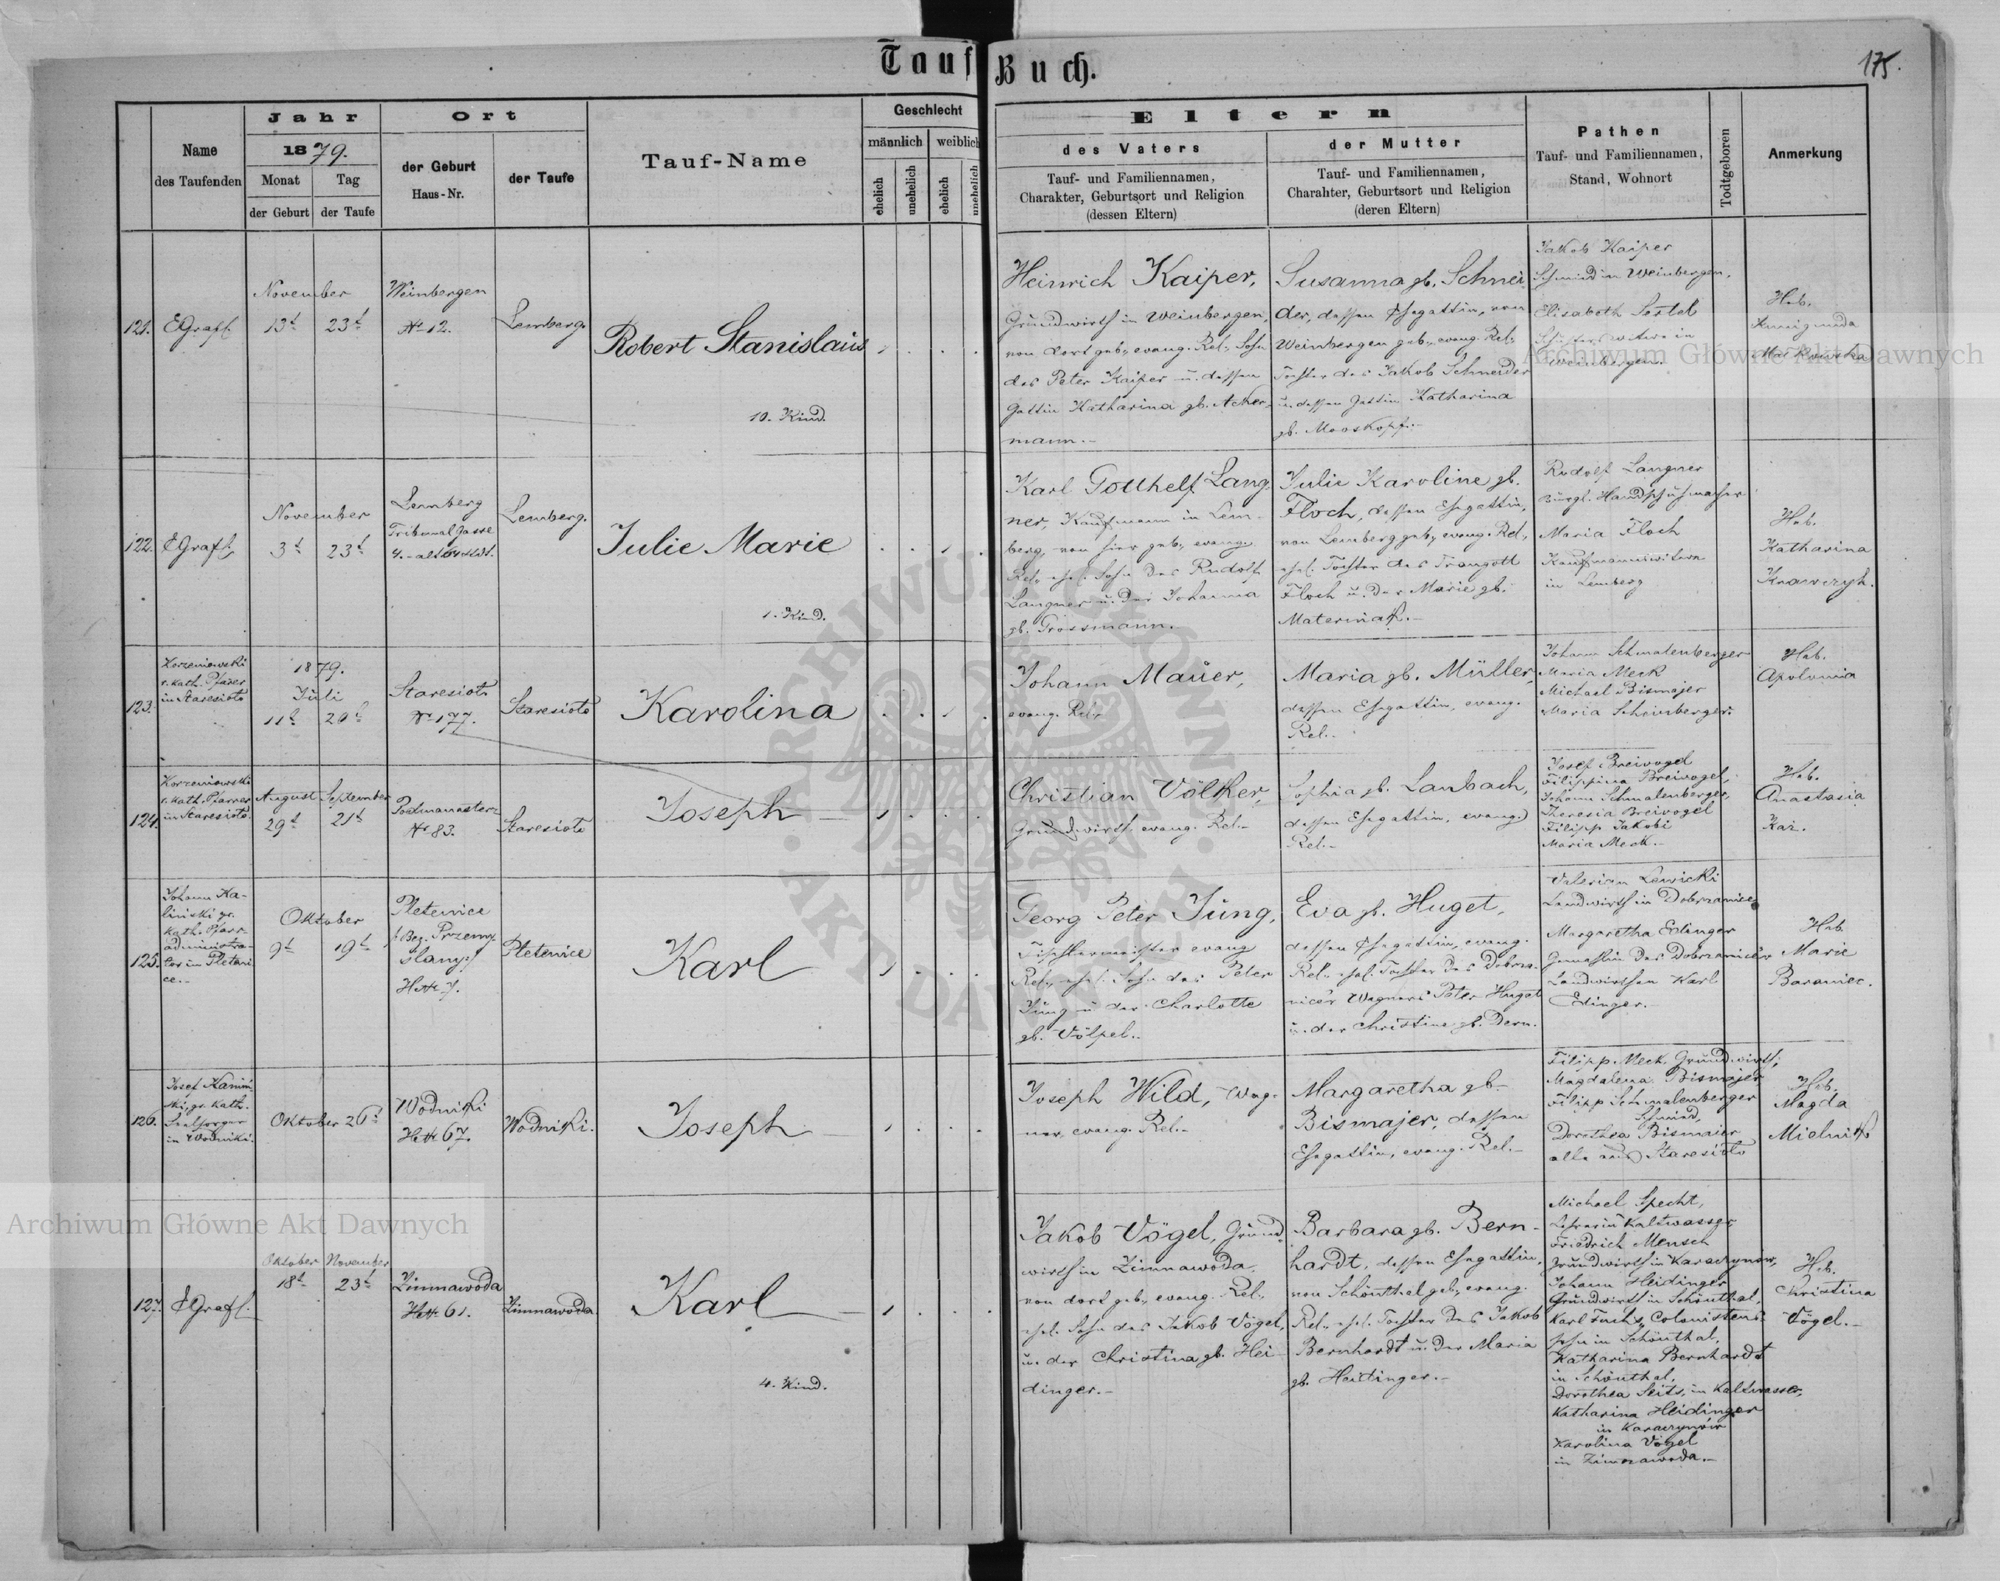 Tauf Buch.
175.
Name
des Taufenden
Jahr
1879.
Monat
der Geburt
Tag
der Taufe
Ort
der Geburt
Haus-Nr.
der Taufe
Tauf-Name
Geschlecht
männlich
weiblich
ehelich
unehelich
ehelich
unehelich
Eltern
des Vaters
Tauf- und Familiennamen,
Charakter, Geburtsort und Religion
(dessen Eltern)
der Mutter
Tauf- und Familiennamen,
Charahter, Geburtsort und Religion
(deren Eltern)
Pathen
Tauf- und Familiennamen,
Stand, Wohnort
Todtgeboren
Anmerkung
121.
EGrafl.
November
13t
23t
Weinbergen
No 12.
Lemberg.
Robert Stanislaus
10. Kind.
Heinrich Kaiper,
Grundwirth in Weinbergen,
von dort geb., evang. Rel., Sohn
des Peter Kaiper u. dessen
Gattin Katharina gb. Acker-
mann.-
Susanna gb. Schnei-
der, dessen Ehegattin, von
Weinbergen geb., evang. Rel.,
Tochter des Jakob Schneider
u. dessen Gattin Katharina
gb. Mooskopf.-
Jakob Kaiper
Schmied in Weinbergen.
Elisabeth
in
Weinbergen.
Heb.
122.
EGrafl.
November
3t
23t
Lemberg
Tribunalgasse
Lemberg.
Julie Marie
1. Kind.
Karl Gotthelf Lang-
ner, Kaufmann in Lem-
berg, von hier geb., evang.
Rel., ehel. Sohn des Rudolf
Langner u. der Johanna
gb. Grossmann.
Julie Karoline gb.
Floch, dessen Ehegattin,
von Lemberg geb., evang. Rel.,
ehel. Tochter des Traugott
Floch u. der Marie gb.
Materinak.-
Rudolf Langner
bürgl. Handschuhmacher
Maria Floch
Kaufmannswitwe
in Lemberg
Heb.
Katharina
Krawczyk.
123.
Korzeniowski
r. kath. Pfarrer
in Staresioto
1879.
Juli
11t
20t
Staresioto
No 177.
Staresioto
Karolina
Johann Mauer,
evang. Rel.
Maria gb. Müller,
dessen Ehegattin, evang.
Rel.-
Johann Schmalenberger
Maria Meck
Michael Bismajer
Maria Schönberger.
Heb.
Apolonia
124.
Korzeniowski
r. kath. Pfarrer
in Staresioto.
August
29t
September
21t
Podmanaster-
No 83.
Staresioto
Joseph
Christian Völker,
Grundwirth, evang. Rel.-
Sophia gb. Laubach,
dessen Ehegattin, evang.
Rel.-
Josef Breivogel
Filippina Breivogel,
Johann Schmalenberger,
Theresia Breivogel
Filipp Jakobi
Maria Meck.-
Heb.
Anastasia
125.
Johann Ka-
linski gr.
kath. Pfarr-
administra-
tor in Pleteni-
ce.-
Oktober
9t
19t
Pletenice
Pletenice
Karl
Georg Peter Jung,
Tischlermeister evang
Rel., ehel. Sohn des Peter
Jung u. der Charlotte
gb. Völpel.-
Eva gb. Huget,
dessen Ehegattin, evang.
Rel., ehel. Tochter des Dobrza-
nicer Wagners Peter Huget
u. der Christine gb. Dern.
Valerian Lewicki
Landwirth in Dobrzanice,
Margaretha Edinger
Gemahlin des Dobrzanicer
Landwirthen Karl
Edinger.-
Heb.
Marie
Baraniec.
126.
Josef Kamin-
ski, gr. kath.
Seelsorger
in Wodniki.
Oktober 26t
Wodniki
67.
Wodniki.
Joseph
Joseph Wild, Wag-
ner, evang. Rel.-
Margaretha gb-
Bismajer, dessen
Ehegattin, evang. Rel.-
Filipp Meck, Grundwirth,
Magdalena Bismajer
Filipp Schmalenberger
Schmied,
Dorothea Bismaier
alle aus Staresioto
Heb.
Magda
Mielnik
127.
EGrafl.
Oktober
18t
November
23t
Zimnawoda
61.
Zimnawoda.
Karl
4. Kind.
Jakob Vögel, Grund-
wirth in Zimnawoda,
von dort geb., evang. Rel.,
ehel. Sohn des Jakob Vögel,
u. der Christina gb. Hei-
dinger.-
Barbara gb. Bern-
hardt, dessen Ehegattin,
von Schönthal geb., evang.
Rel., ehel. Tochter des Jakob
Bernhardt u. der Maria
gb. Heidinger.-
Michael Specht,
Lehrer in Kaltwasser
Friedrich Mensch
Grundwirth in Karaczynow,
Johann Heidinger
Grundwirth in Schönthal,
Karl Fuchs, Colonistens-
sohn in Schönthal,
Katharina Bernhardt
in Schönthal,
Dorothea Seits, in Kaltwasser,
Katharina Heidinger
in Karaczynow
Karolina Vögel
in Zimnawoda.-
Heb.
Christina
Vögel.-
Archiwum Główne Akt Dawnych
Archiwum Główne Akt Dawnych
ARCHIWUM GŁÓWNE AKT DAWNYCH